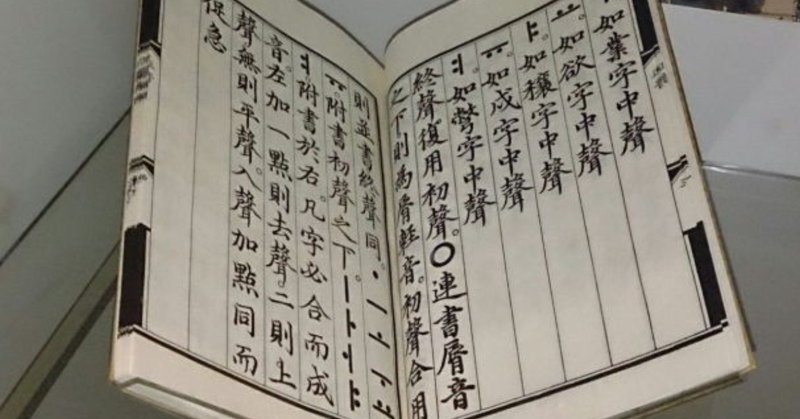 如業字中聲
ㅛ。如欲字中聲
ㅑ。如穰字中聲
ㅠ。如戌字中聲
ㅕ。如彆字中聲
終聲復用初聲。○連書脣音
之下則爲脣輕音。初聲合用
則並書終聲同。ㆍㅡㅗㅜㅛ
ㅠ附書初聲之下。ㅣㅏㅓㅑ
ㅕ附書於右。凡字必合而成
音左加一點則去聲。二則上
聲無則平聲。入聲加點同而
促急